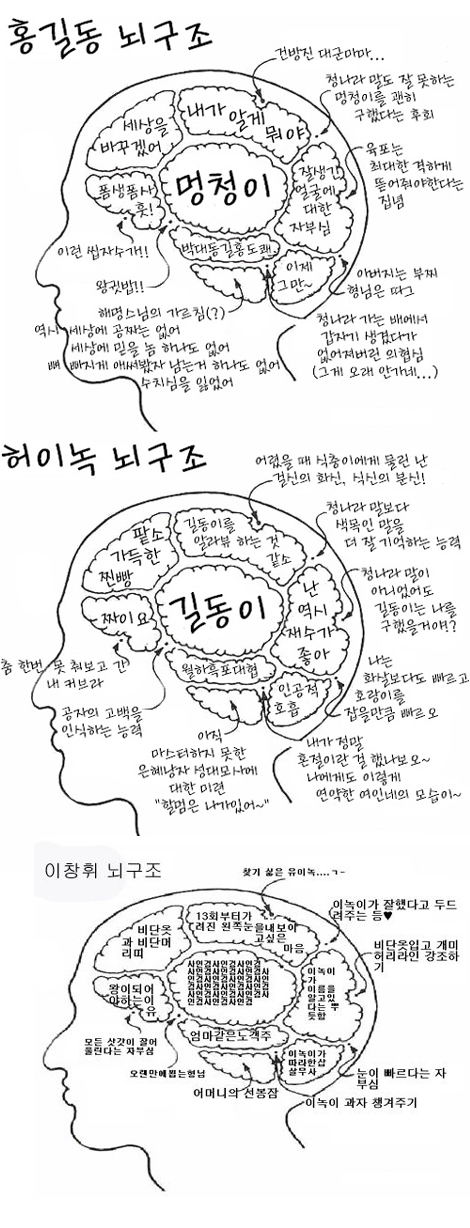 홍길동 뇌구조
건방진 대군마마...
청나라 말도 잘 못하는
멍청이를 괜히
구했다는 후회
내가 알게
뭐야
세상을
바꾸겠어
육포는
최대한 격하게
뜯어줘야한다는
집념
멍청이
잘생긴
얼굴에
대한
자부심
폼생폼사
훗!
이런 씹자수가!!
박대동길홍도쾌
이제
그만~
왕귓밥!!
아버지는 부찌
형님은 따그
해명스님의 가르침(?)
역시 세상에 공짜는 없어
세상에 믿을 놈 하나도 없어
뼈 빠지게 애써봤자 남는거 하나도 없어
수치심을 잃었어
청나라 가는 배에서
갑자기 생겼다가
없어져버린 의협심
(그게 오래 안가네...)
허이녹 뇌구조
어렸을 때 식충이에게 물린 난
걸신의 화신, 식신의 분신!
청나라 말보다
색목인 말을
더 잘 기억하는 능력
팥소
가득한
찐빵
길동이를
알라뷰 하는 것
같소
청나라 말이
아니었어도
길동이는 나를
구했을거야?
길동이
난
역시
재수가
좋아
짜이요
춤 한번 못 춰보고 간
내 커브라
월하흑포대협
인공적
호흡
나는
화살보다도 빠르고
호랑이를
잡을만큼 빠르오
공자의 고백을
인식하는 능력
아직
마스터하지 못한
은혜낭자 성대모사에
대한 미련
"할멈은 나가있어~"
내가 정말
혼절이란 걸 했나보오~
나에게도 이렇게
연약한 여인네의 모습이~
이창휘 뇌구조
찾기 싫은 유이녹....ㄱ-
이녹이가 잘했다고 두드
려주는 등♥
비단옷
과 비단머
리띠
13회부터가
려진 왼쪽눈을내보이
고싶은
마음
비단옷입고 개미
허리라인 강조하
기
사인검사인검사인검사인검
이녹이
가
이름을
알고있
다는 뿌
듯함
왕이되어
야하는이
유
모든 삿갓이 잘어
울린다는 자부심
엄마같은노객주
오랜만에뵙는형님
이녹이가
따라한삽
살무사
어머니의 선봉잠
눈이 빠르다는 자
부심
이녹이 과자 챙겨주기